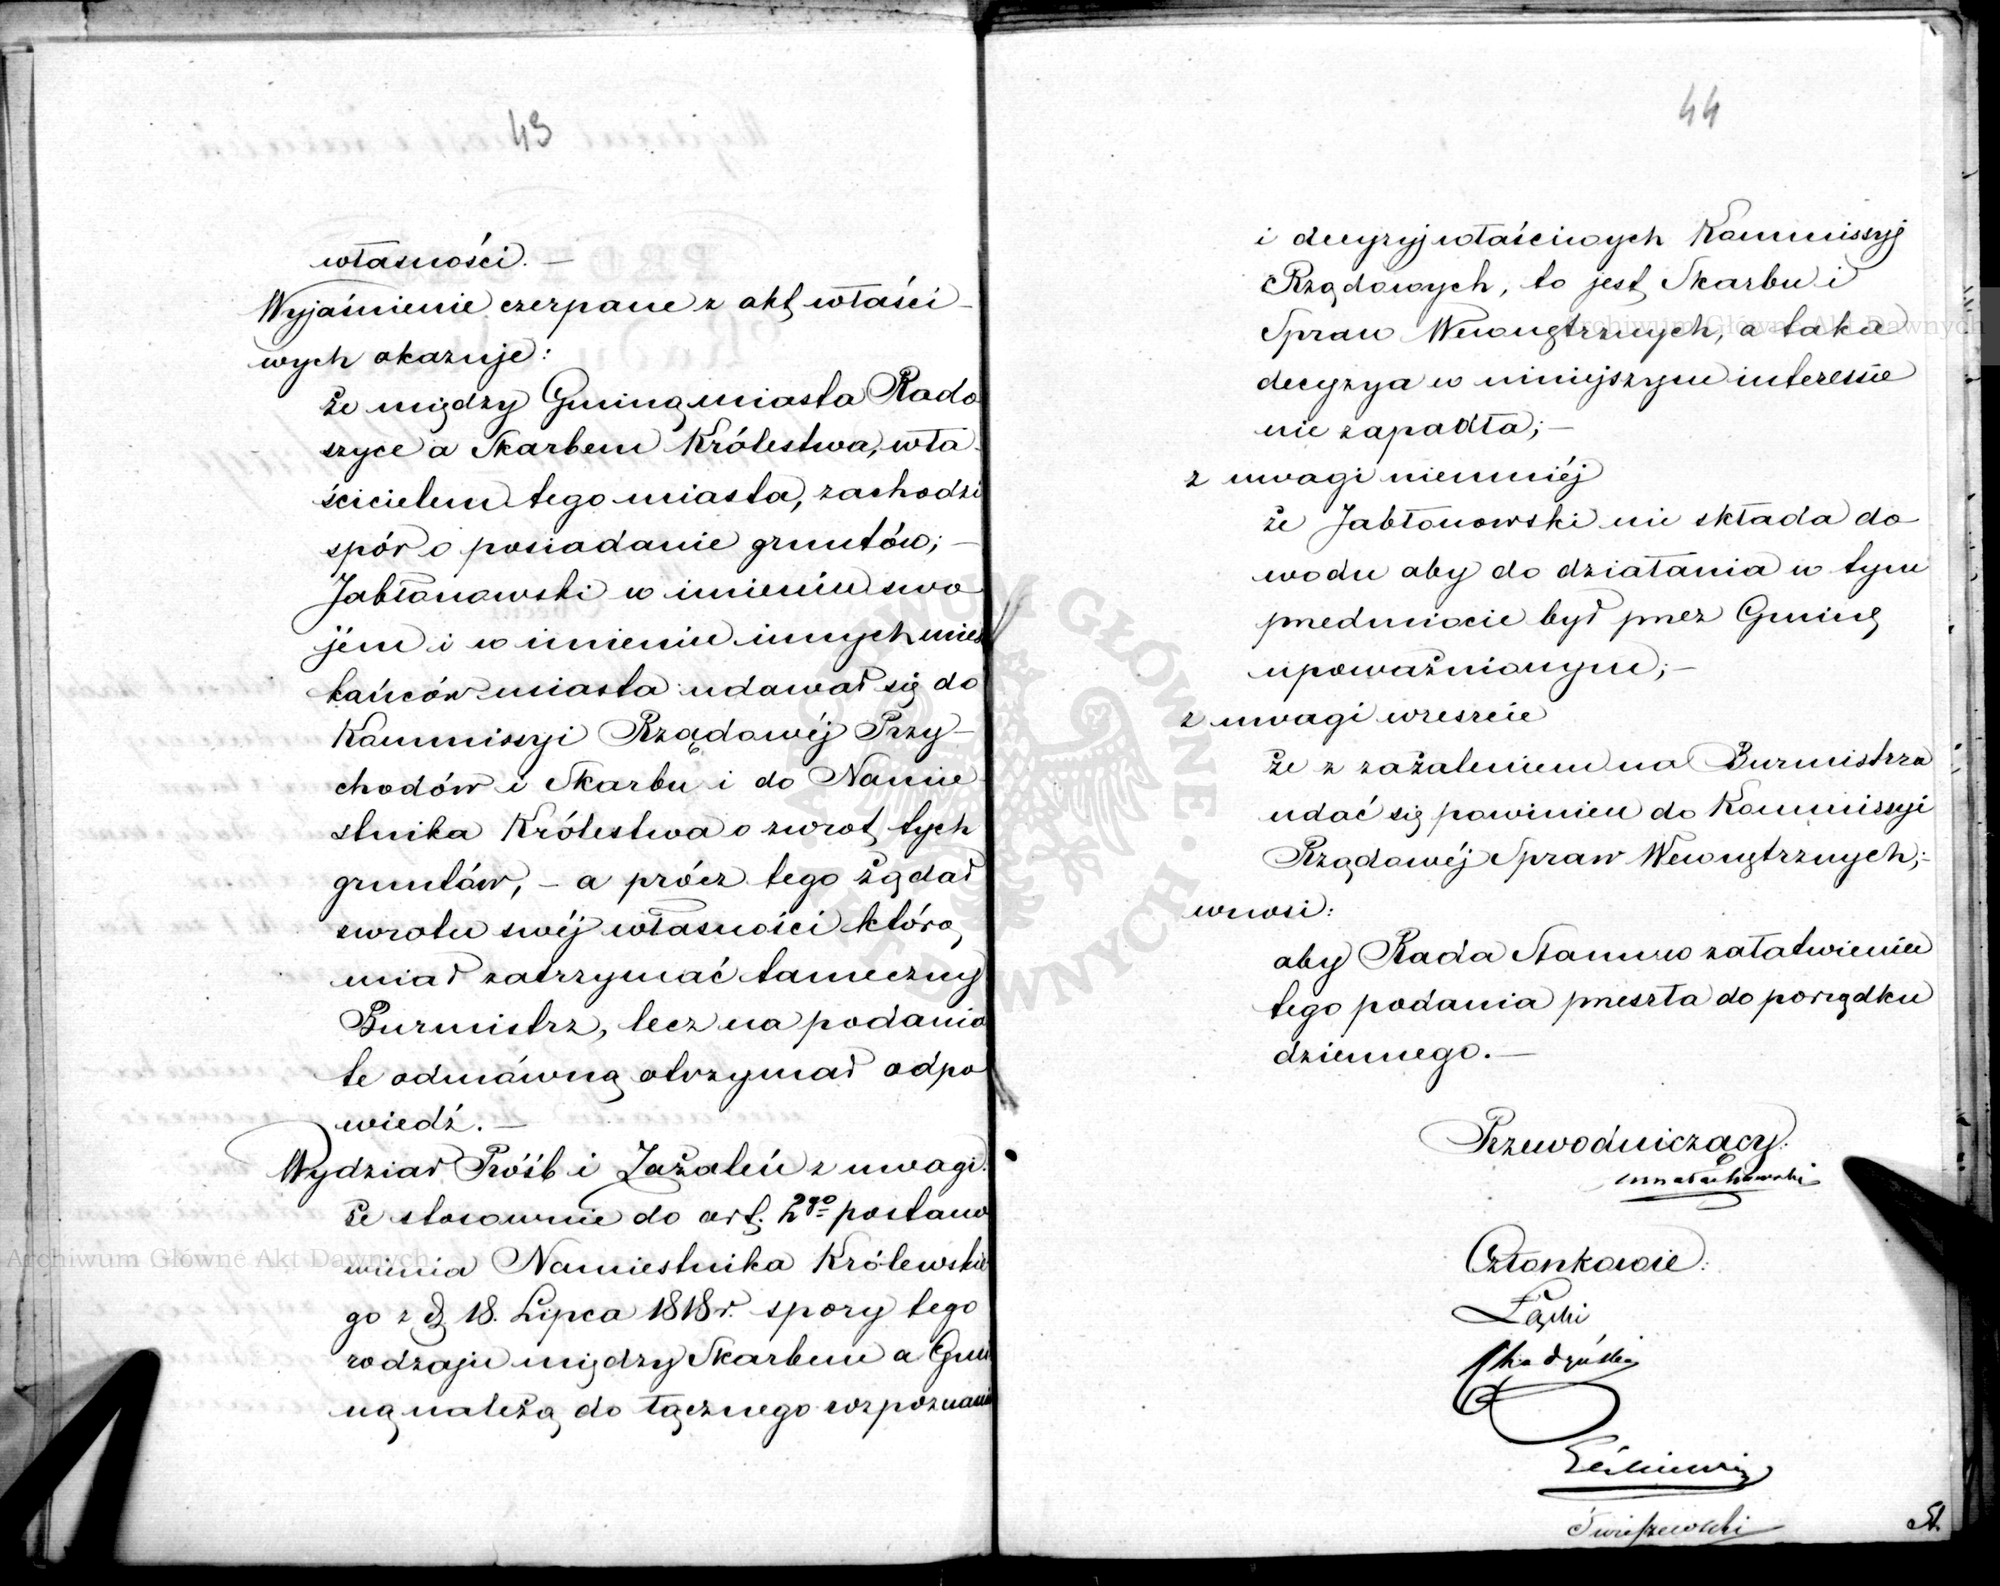 43
własności. —
Wyjaśnienie czerpane z akt właści-
wych okazuje:
że między Gminą miasta Rado
szyce a Skarbem Królestwa, wła-
ścicielem tego miasta, zachodzi
spór o posiadanie gruntów; —
Jabłonowski w imieniu swo
jém i w imieniu innych miesz
kańców miasta udawał się do
Kommissyi Rządowéj Przy-
chodów i Skarbu i do Namie-
stnika Królestwa o zwrot tych
gruntów, — a prócz tego żądał
zwrotu swéj własności którą
miał zatrzymać tameczny
Burmistrz, lecz na podania
te odmówną otrzymał odpo
wiedź. —
Wydział Próśb i Zażaleń z uwagi:
że stosownie do art. 2go postano
wienia Namiestnika Królewskie
go z d. 18. Lipca 1818 r. spory tego
rodzaju między Skarbem a Gmi
ną należą do łącznego rozpoznania
44
i decyzyj właściwych Kommissyj
Rządowych, to jest Skarbu i
Spraw Wewnętrznych, a taka
decyzya w niniejszym interessie
nie zapadła; —
z uwagi niemniéj
że Jabłonowski nie składa do
wodu aby do działania w tym
przedmiocie był przez Gminę
upoważnionym; —
z uwagi wreszcie
że z zażaleniem na Burmistrza
udać się powinien do Kommissyi
Rządowéj Spraw Wewnętrznych; —
wnosi:
aby Rada Stanu w załatwieniu
tego podania przeszła do porządku
dziennego. —
Przewodniczący:
Członkowie:
Łęski
Archiwum Główne Akt Dawnych
Archiwum Główne Akt Dawnych
ARCHIWUM GŁÓWNE AKT DAWNYCH